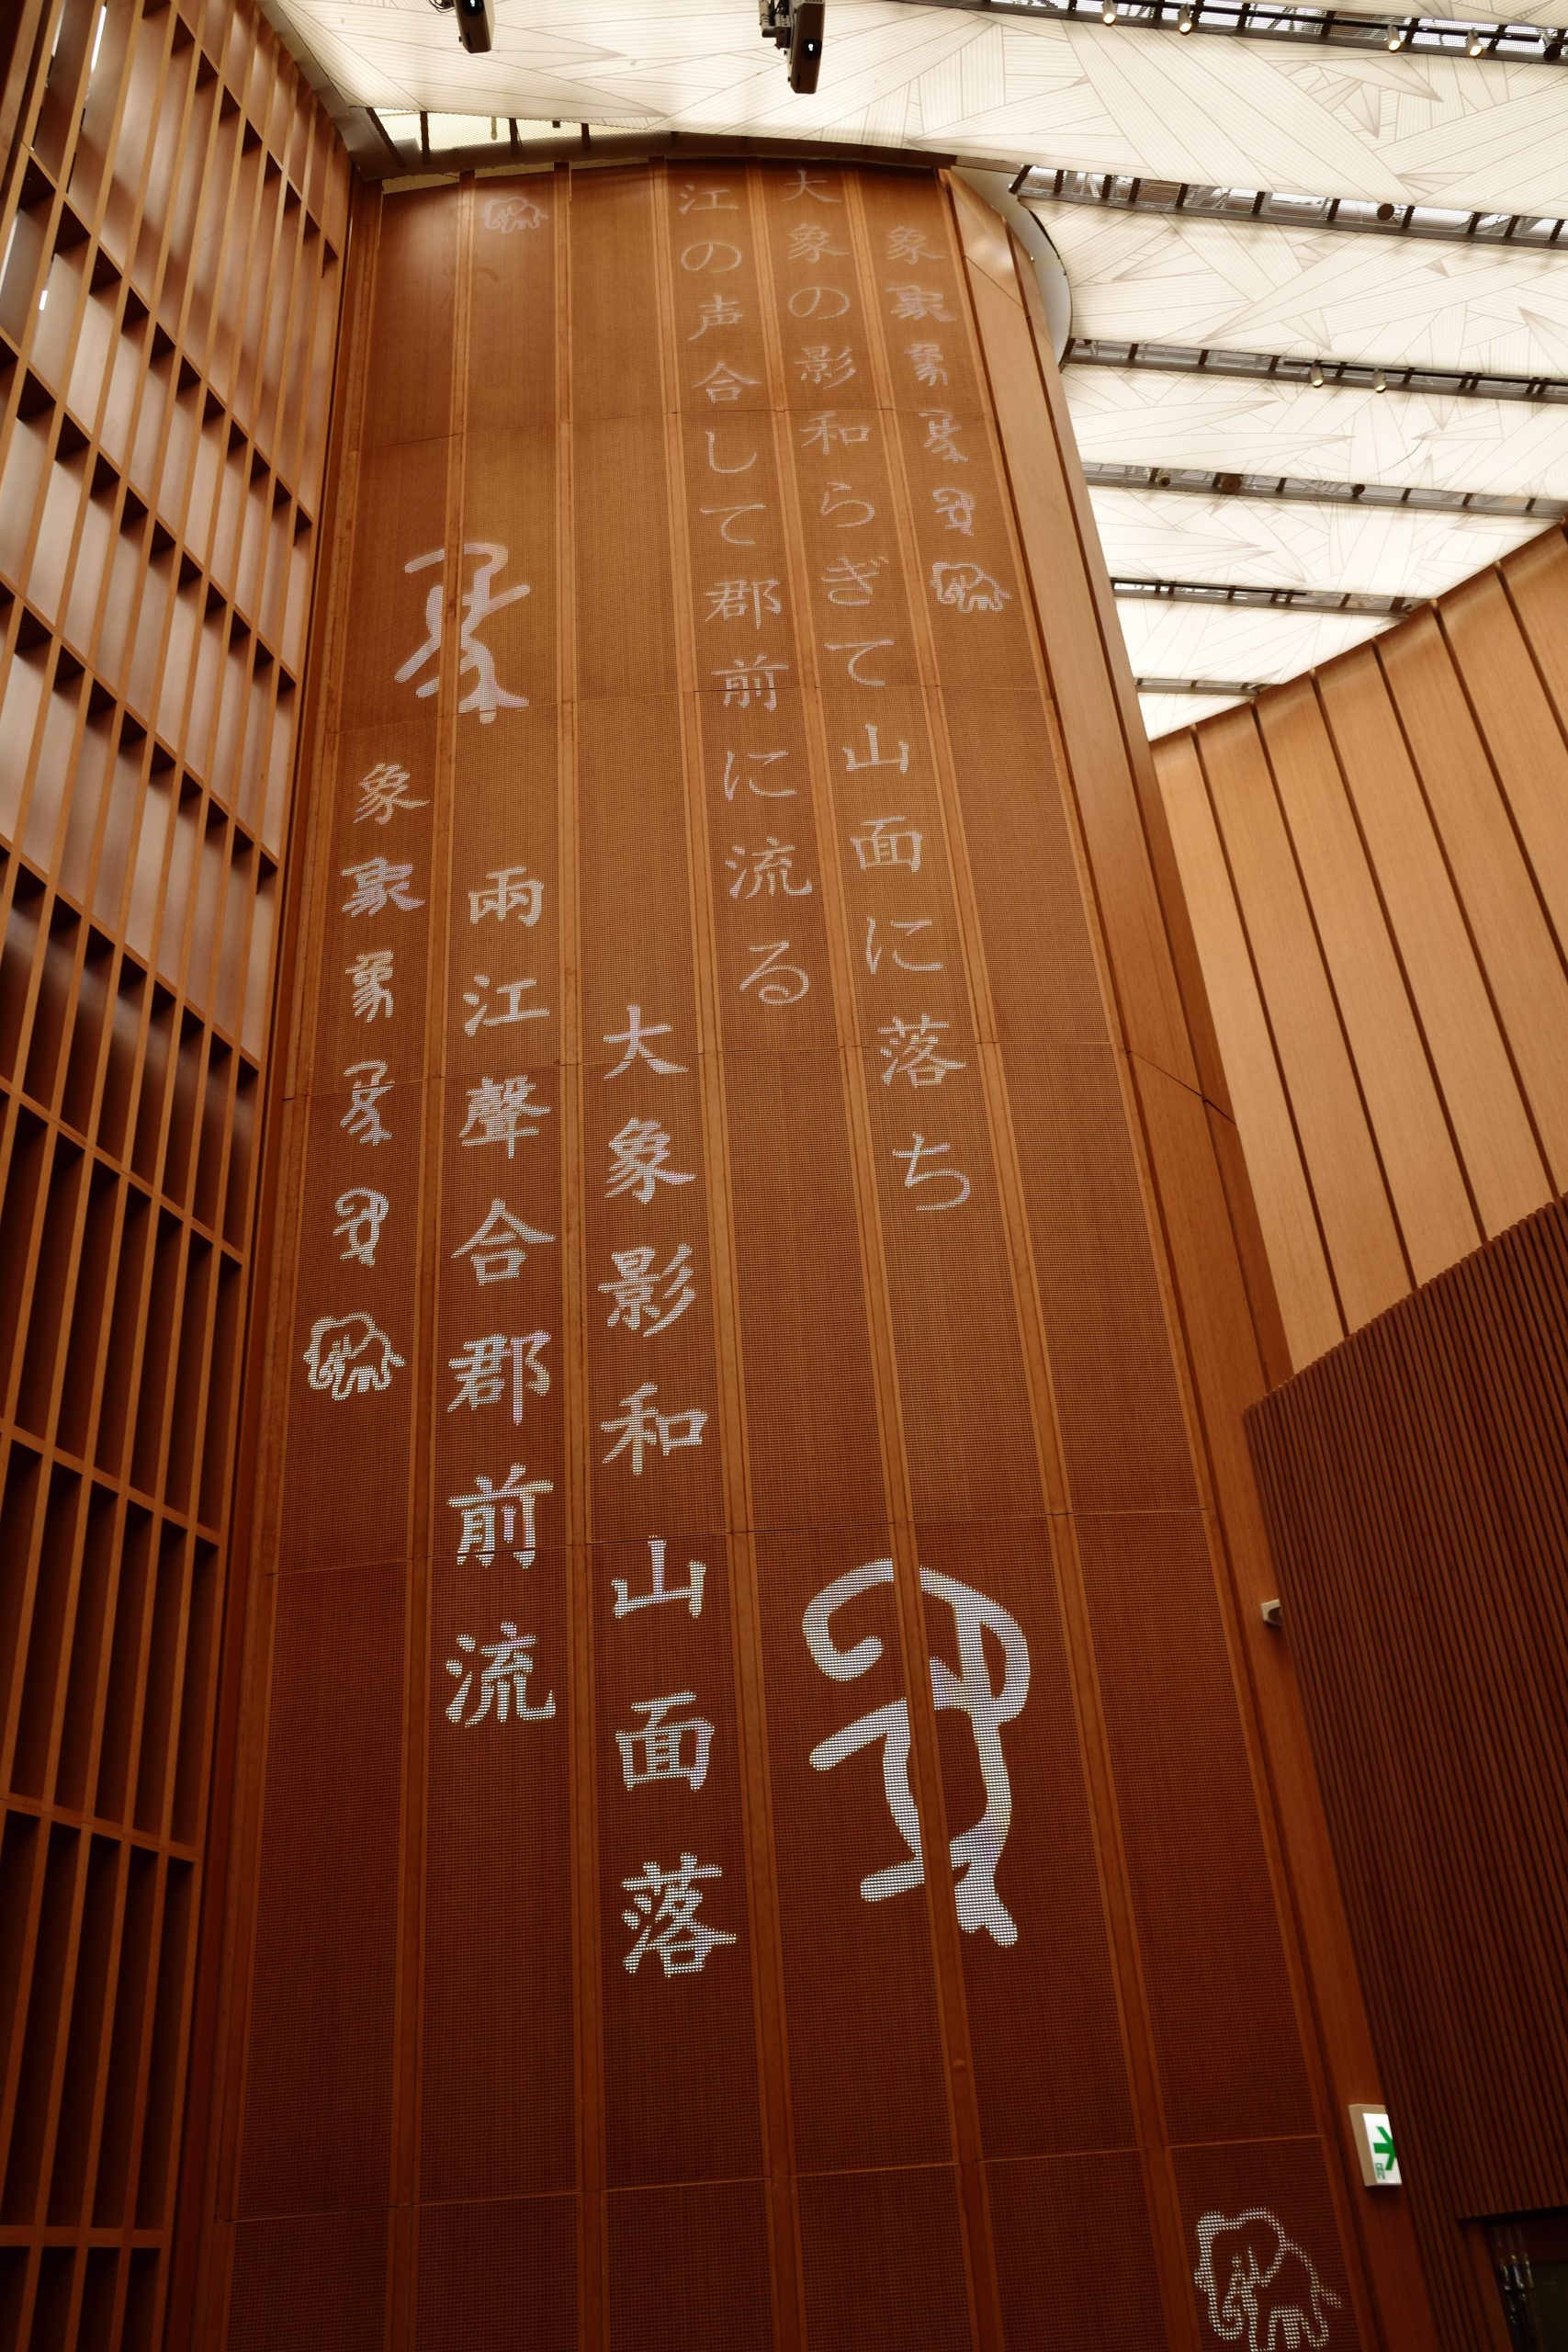 象
大象の影和らぎて山面に落ち
江の声合して郡前に流る
大象影和山面落
兩江聲合郡前流
象